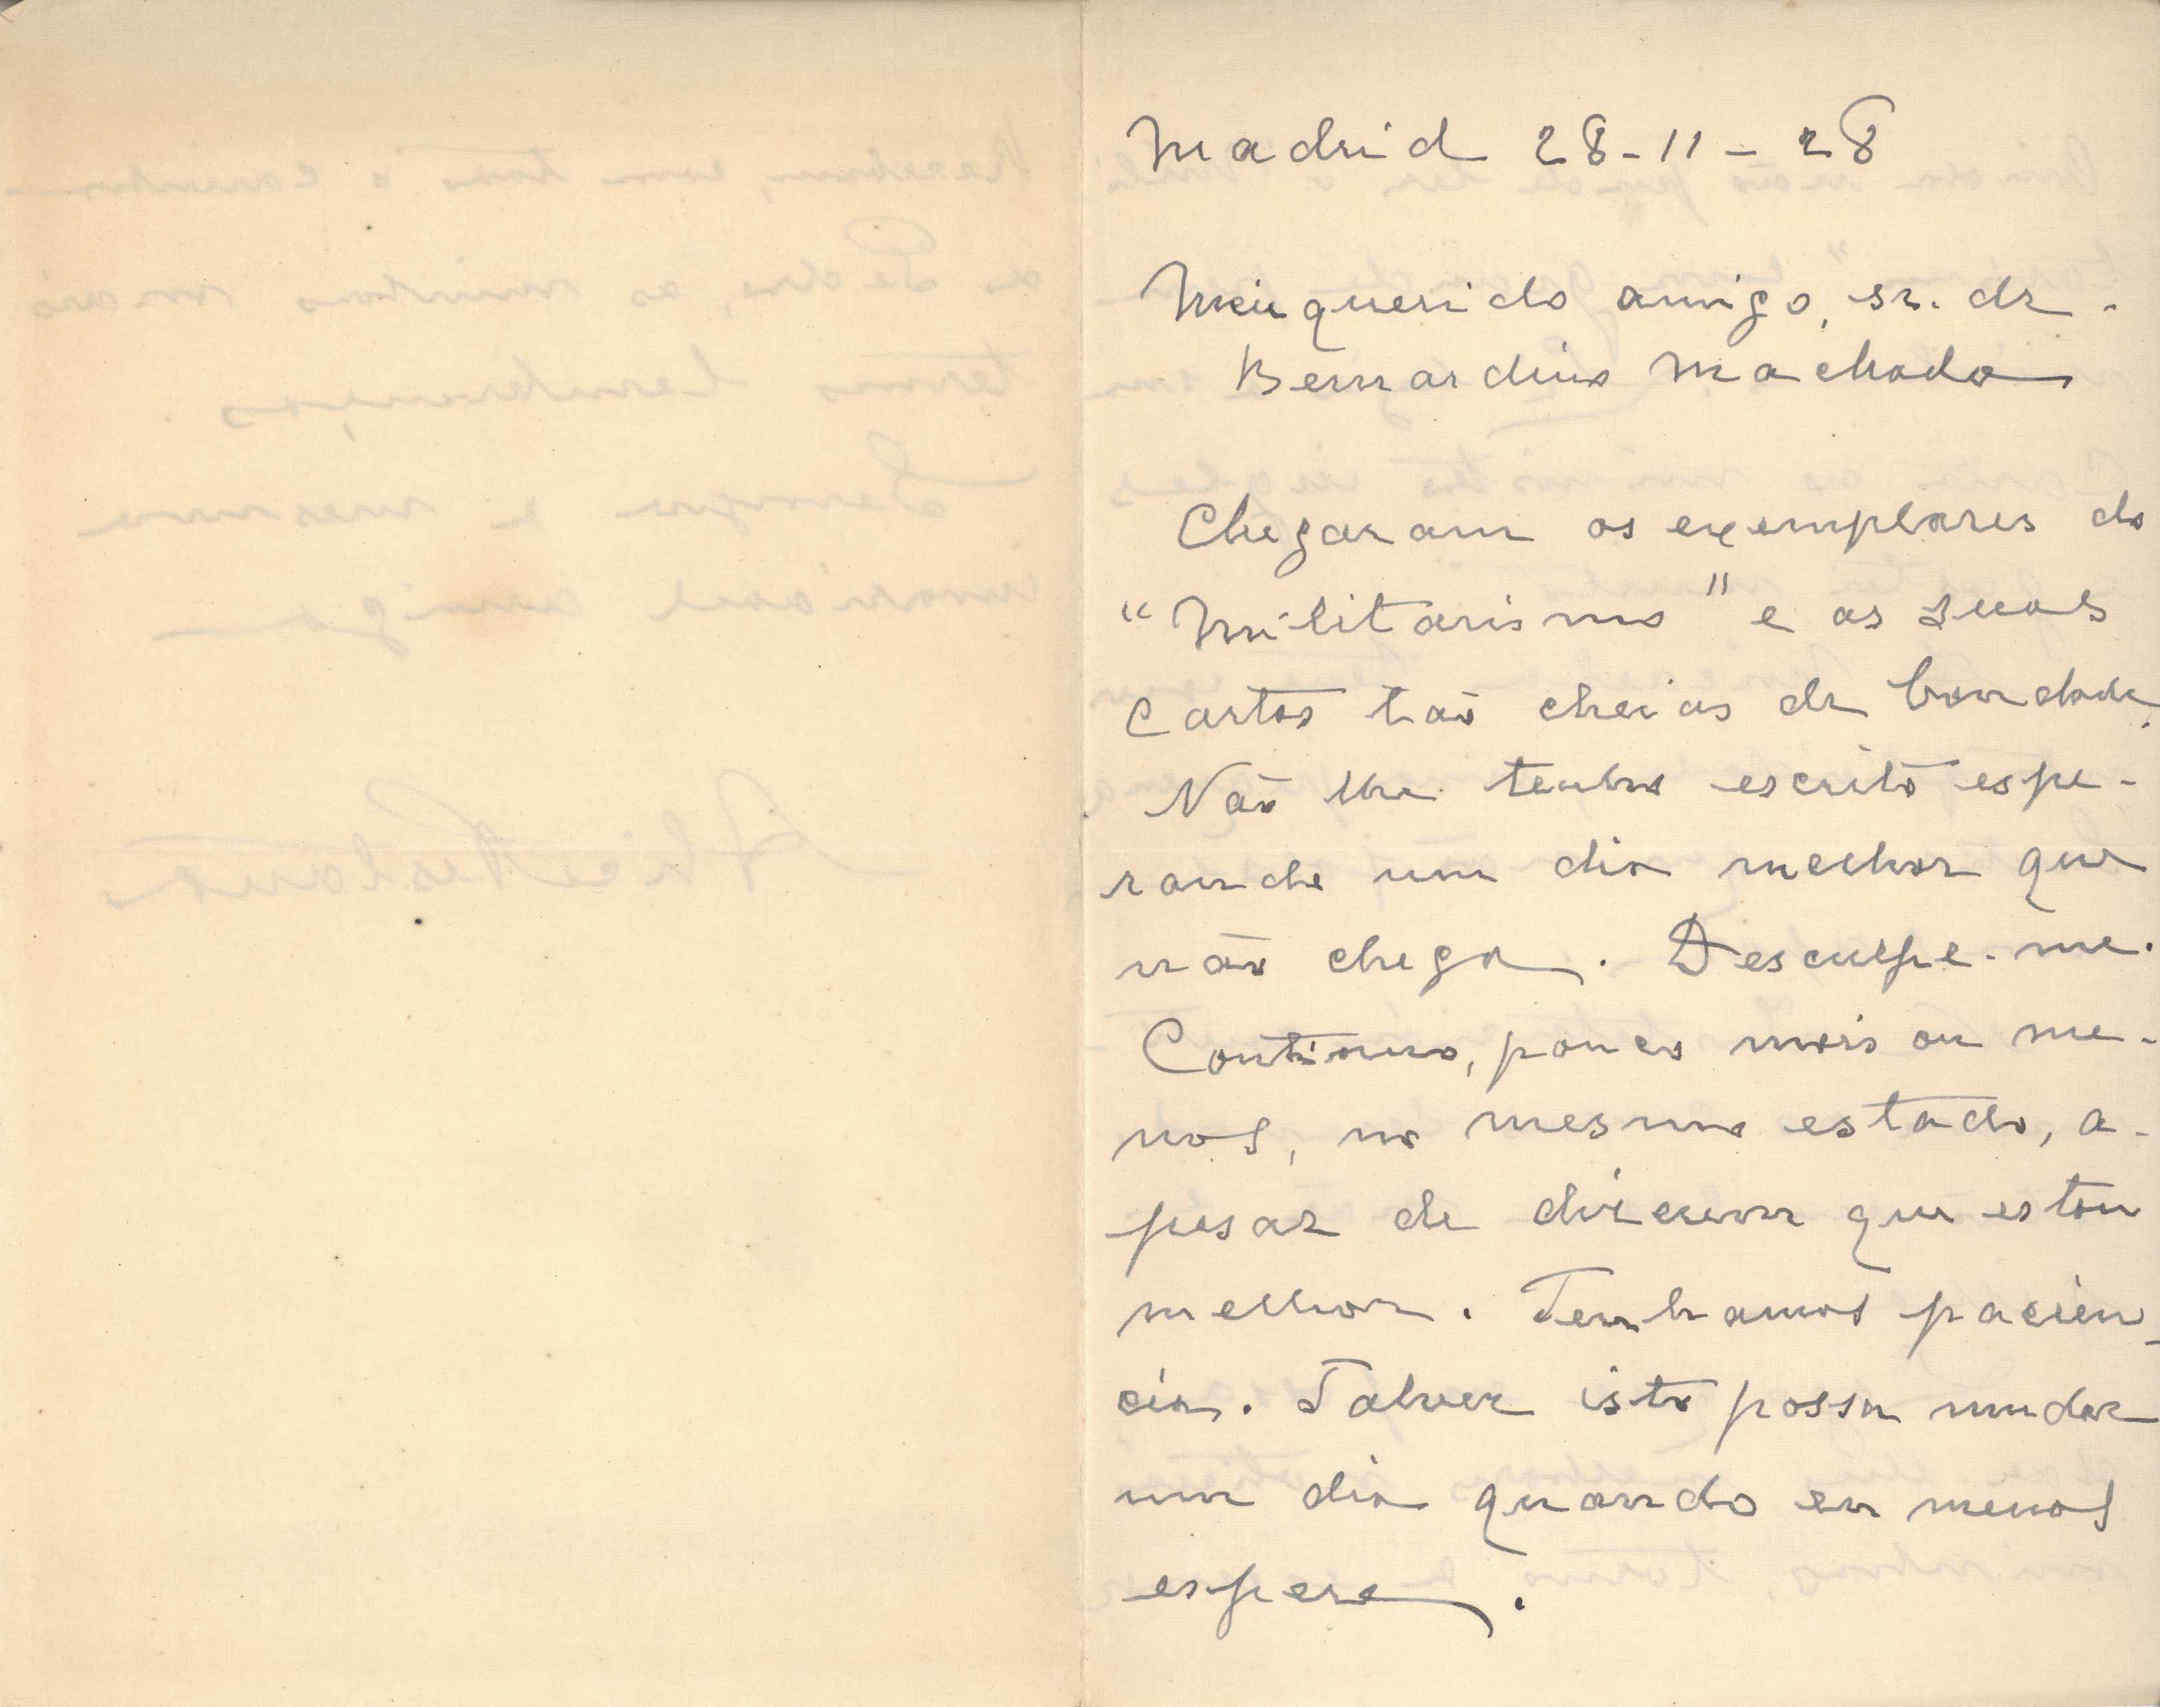 Madrid 28-11-28
Meu querido amigo, sr. dr.
Bernardino Machado
Chegaram os exemplares do
"Militarismo" e as suas
cartas tão cheias de bondade.
Não lhe tenho escrito espe-
rando um dia melhor que
não chega. Desculpe-me.
Continuo, pouco mais ou me-
nos, no mesmo estado, a-
pesar de dizerem que estou
melhor. Tenhamos pacien-
cia. Talvez isto possa mudar
um dia quando eu menos
espere.